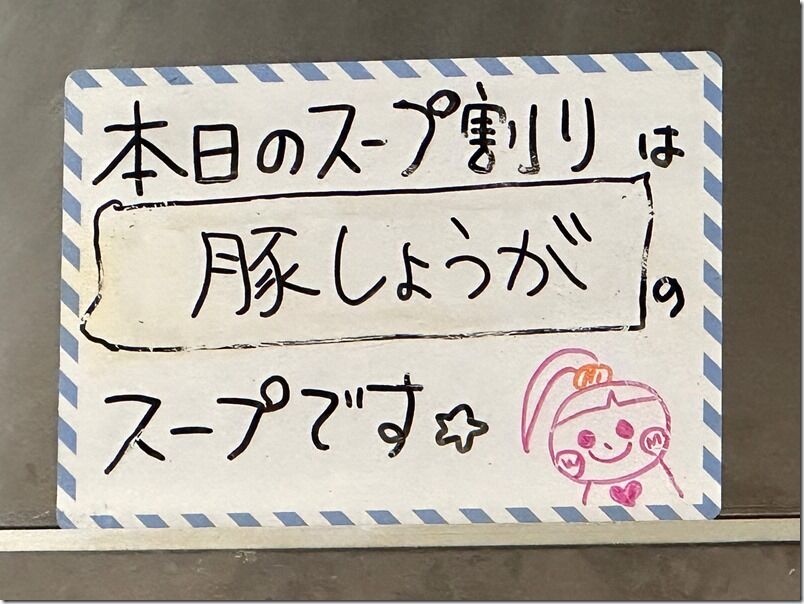 本日のスープ割りは
豚しょうがの
スープです☆
M
S
W M